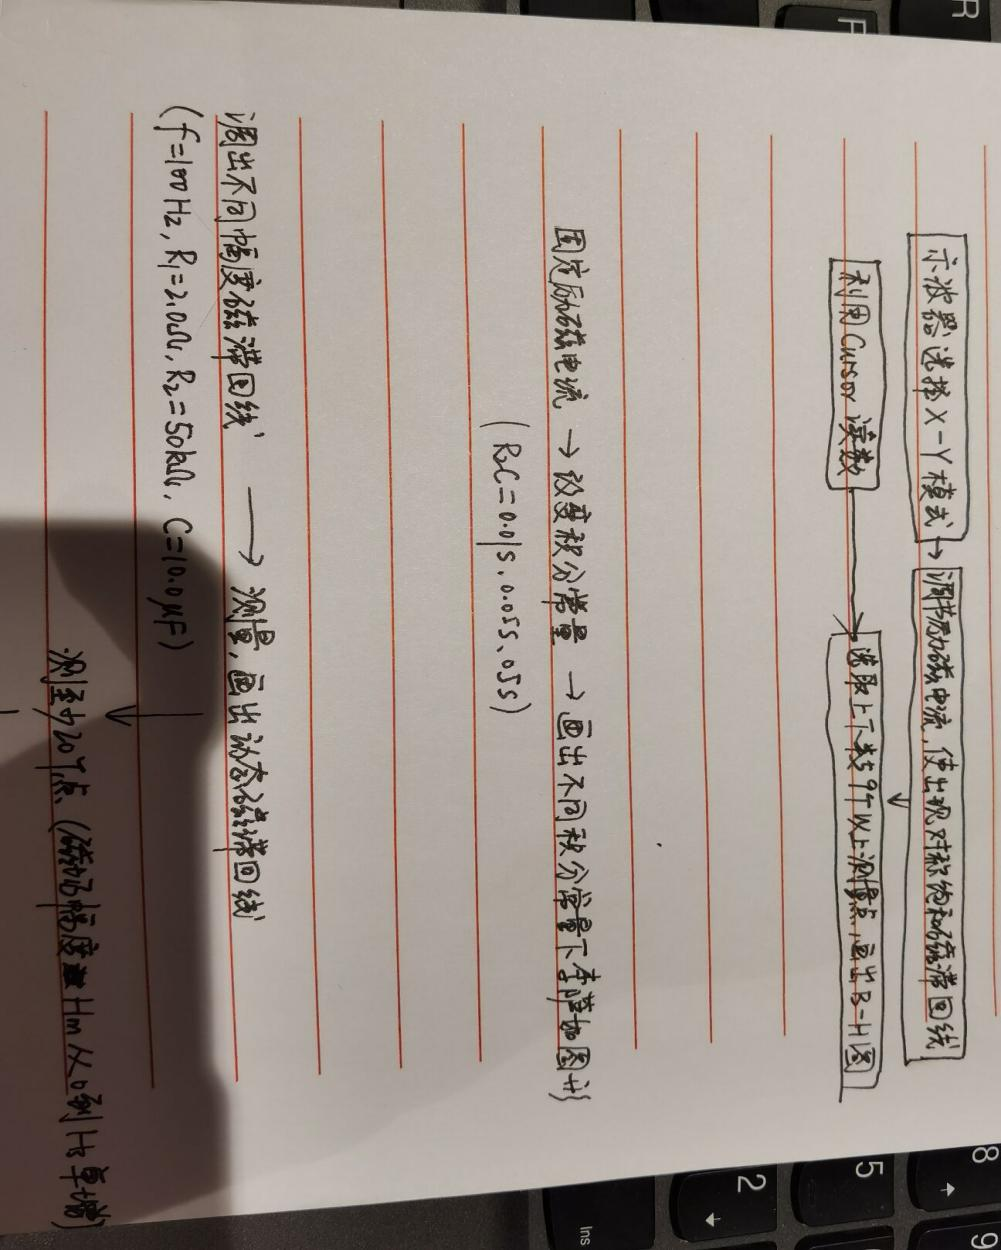 示波器选择X-Y模式 → 调节励磁电流,使出现对称饱和磁滞回线
利用Cursor读数 → 选取上下表59个以上测量点,画出B-H图
固定励磁电流 → 改变积分常量 → 画出不同积分常量下李萨如图形
(R₂C=0.01s、0.05s、0.5s)
调出不同幅度磁滞回线 → 测量,画出动态磁滞回线
(f=100Hz, R₁=2.0Ω, R₂=50kΩ, C=10.0μF)
测至少20个点、(磁场幅度 Hm从0到Hs单增)
R
F
8
5
2
9
Ins